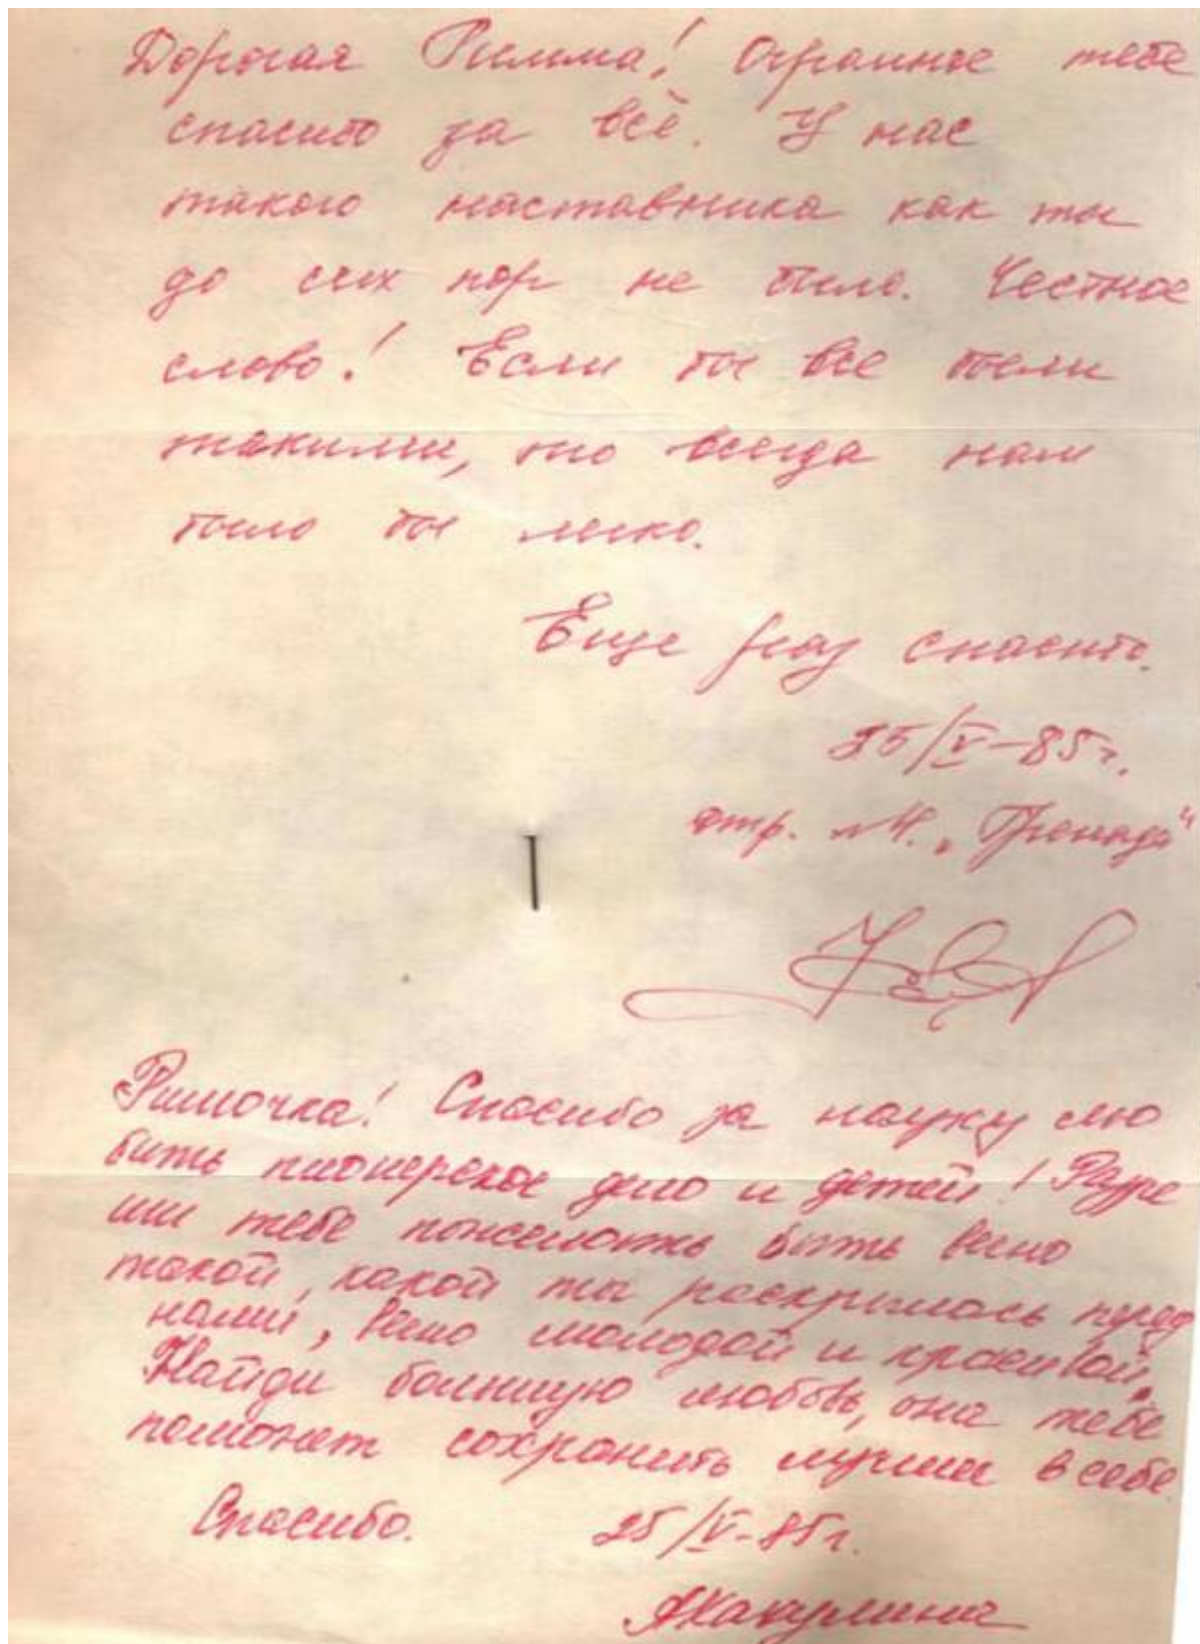 Дорогая Римма! Огромное тебе
спасибо за всё. У нас
такого наставника как ты
до сих пор не было. Честное
слово! Если бы все были
такими, то всегда нам
было бы легко.
Еще раз спасибо.
25/V-85г.
отр. "Гренада"
Риммочка! Спасибо за науку лю
бить пионерское дело и детей! Разре
ши тебе пожелать быть вечно
такой, какой ты раскрылась перед
нами, вечно молодой и красивой.
Найди большую любовь, она тебе
поможет сохранить лучшее в себе
Спасибо. 25/V-85г.